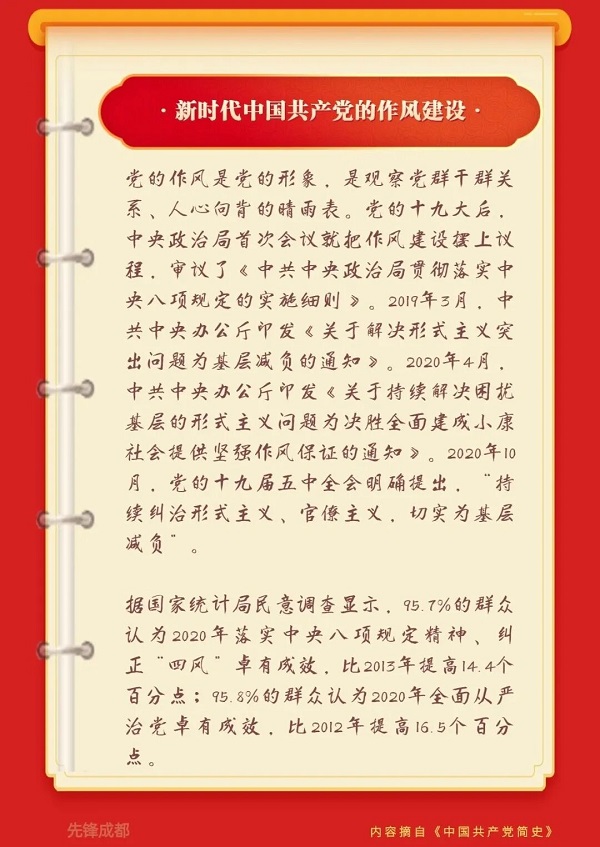 ·新时代中国共产党的作风建设·
党的作风是党的形象，是观察党群干群关
系、人心向背的晴雨表。党的十九大后，
中央政治局首次会议就把作风建设摆上议
程，审议了《中共中央政治局贯彻落实中
央八项规定的实施细则》。2019年3月，中
共中央办公厅印发《关于解决形式主义突
出问题为基层减负的通知》。2020年4月，
中共中央办公厅印发《关于持续解决困扰
基层的形式主义问题为决胜全面建成小康
社会提供坚强作风保证的通知》。2020年10
月，党的十九届五中全会明确提出，“持
续纠治形式主义、官僚主义，切实为基层
减负”。
据国家统计局民意调查显示，95.7%的群众
认为2020年落实中央八项规定精神、纠
正“四风”卓有成效，比2013年提高14.4个
百分点；95.8%的群众认为2020年全面从严
治党卓有成效，比2012年提高16.5个百分
点。
先锋成都
内容摘自《中国共产党简史》